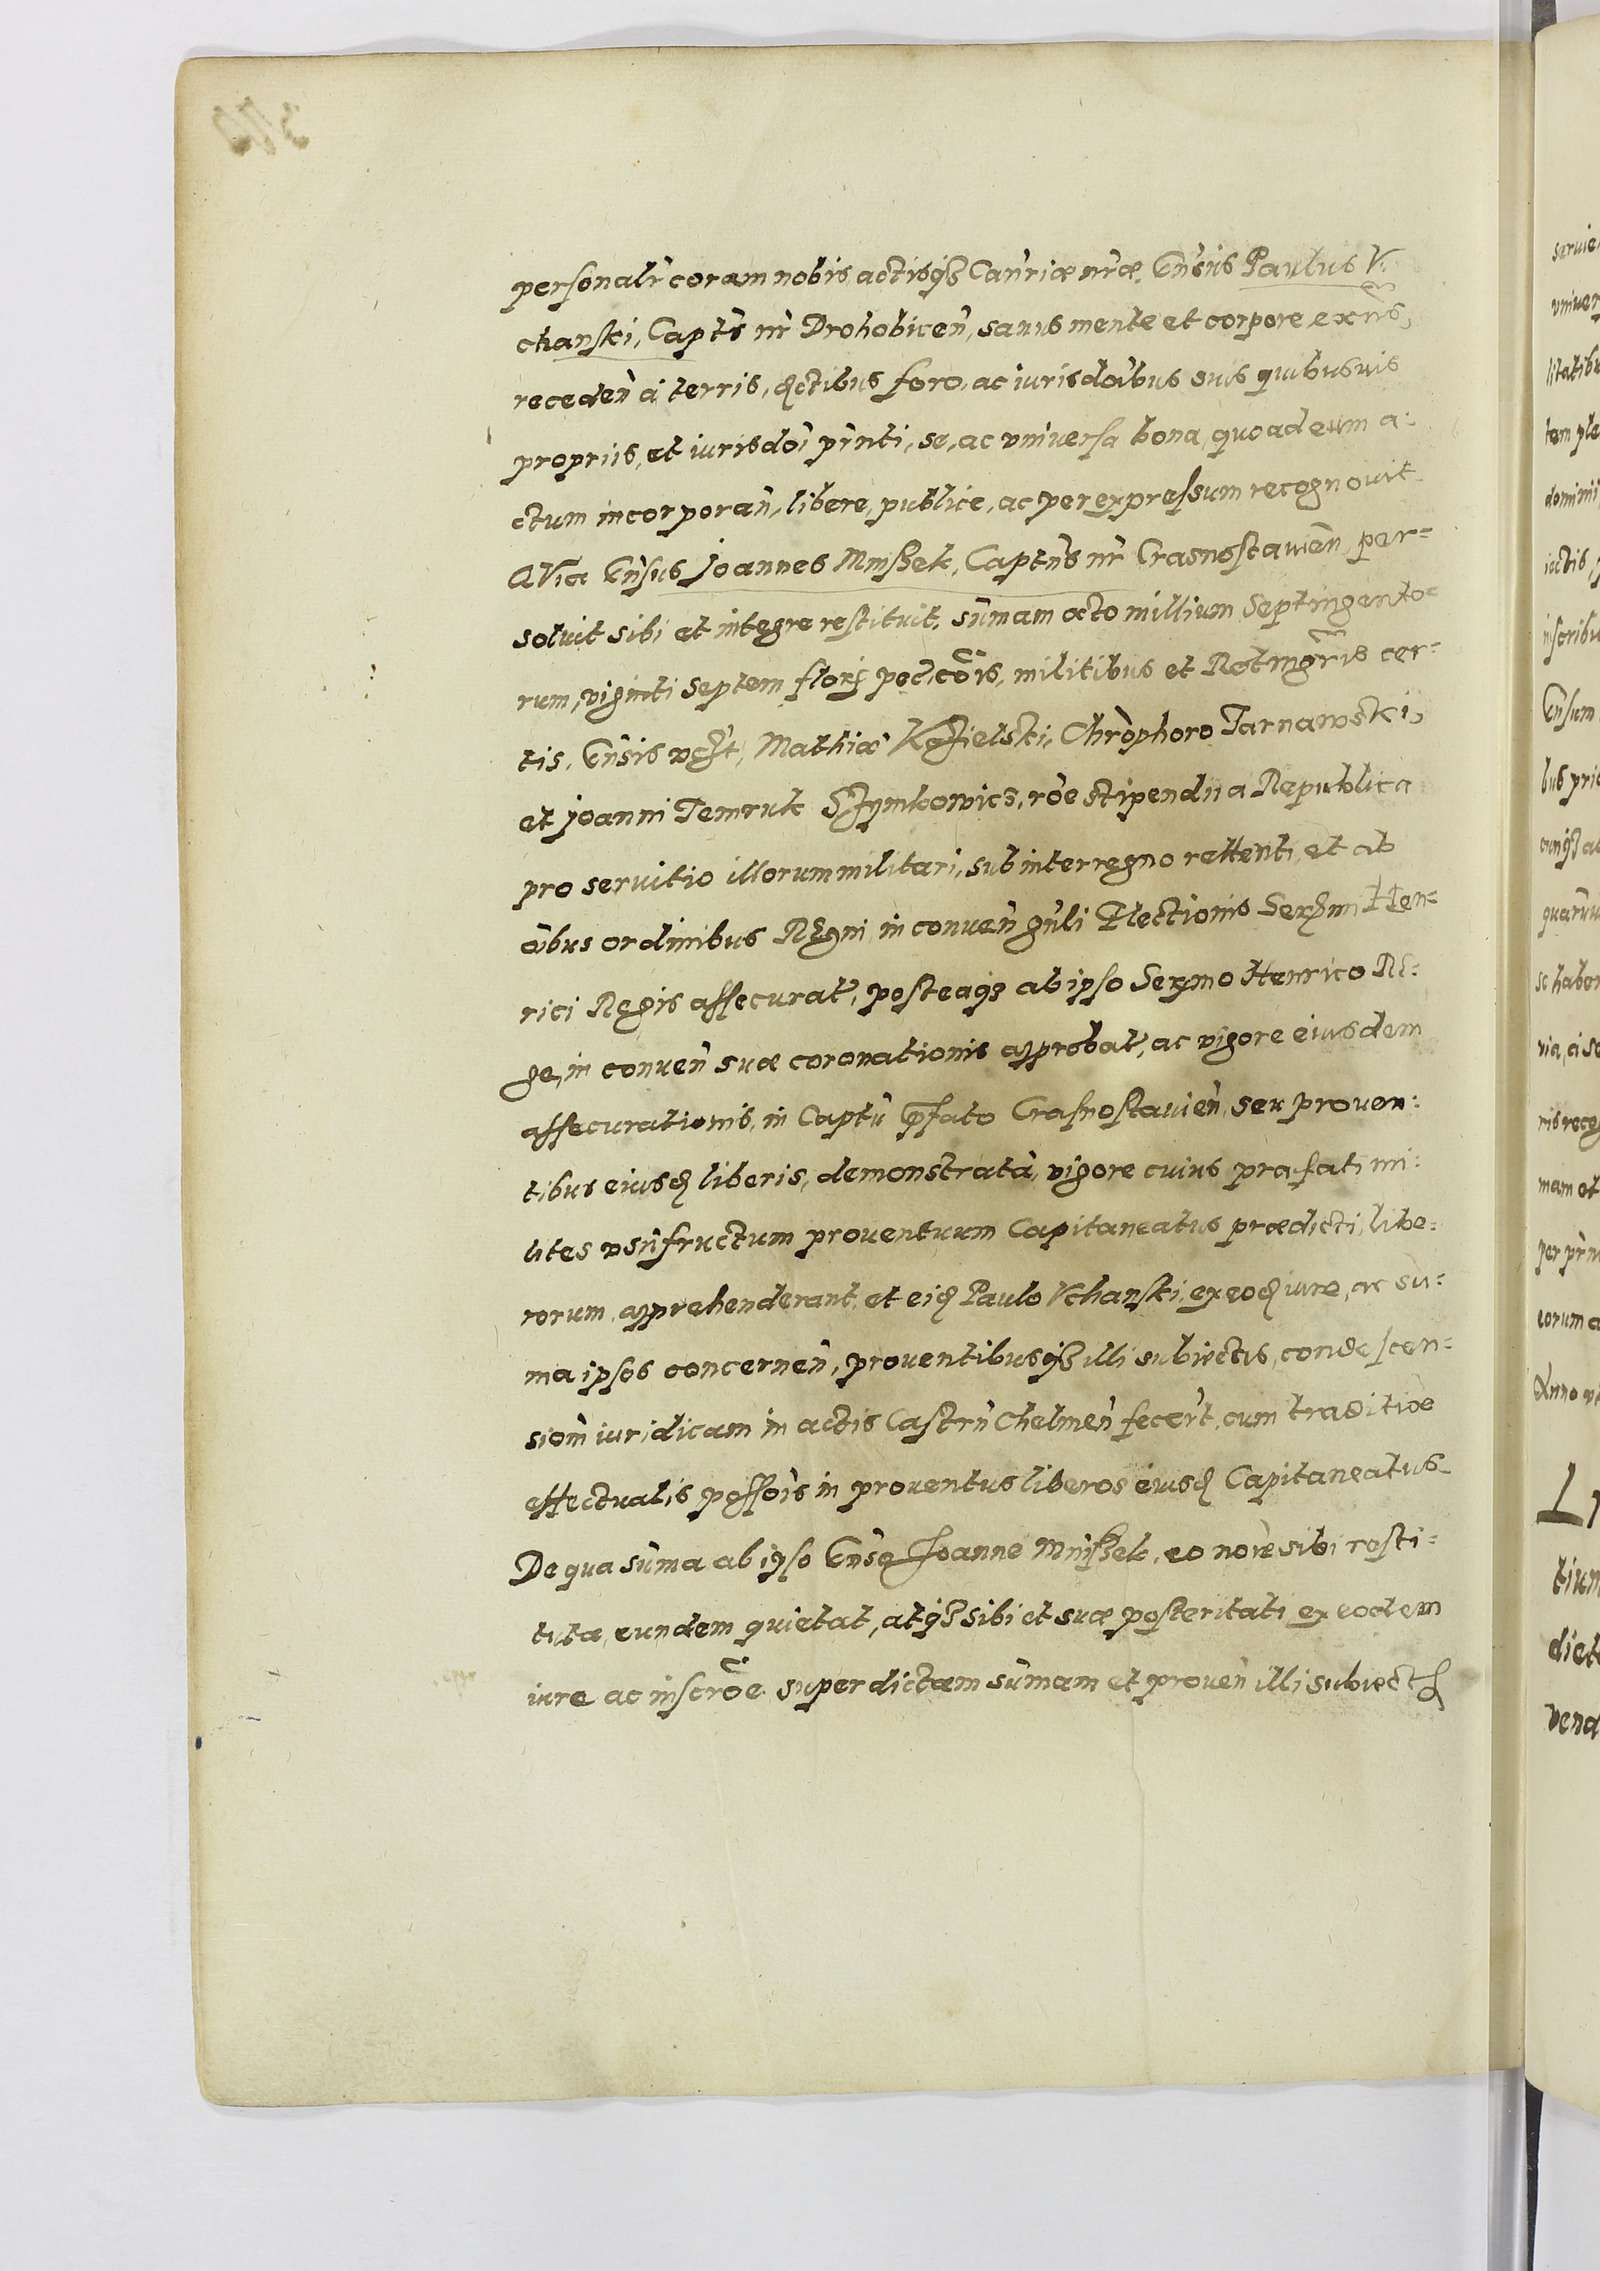 personalr̀ coram nobis actisqȝ Canr̀iæ nr̀æ, Gnsùs Paulus V.
chanski, Captùs nr̀ Drohobicen̄, sanus mente et corpore exn̄s,
receden̄ à terris, dictibus foro, ac iurisdoībus suis quibusuis
proprijs, et iurisdoī pr̀nti, se, ac vniuersa bona, quo ad eum a:
ctum incorporan̄, libere, publice, ac per expressum recognouit
Gnsùs Joannes Mnissek, Captn̄s nr̀ Crasnostauien̄ per=
soluit sibi et integre restituit, sum̄am octo millium septingento
rum, viginti septem, flor pec. coīs, militibus et Rotmgr̄is cer=
tis, Gnsīs Mathiæ Chr̀ophoro Tarnawski,
et Joanni Temruk Szymkowicz, roē stipendij a Republica
pro seruitio illorum militari, sub interregno rettenti, et ab
oībus ordinibus Regni, in conuen̄ gn̄li Electionis Serm̄i Hen=
rici Regis assecurat, posteaqȝ ab ipso Serm̄o Henrico Re:
ge, in conuen̄ suæ coronationis approbat, ac vigore eiusdem
assecurationis, in Captū p̄fato Crasnostauien̄, seu prouen:
tibus eiusd liberis, demonstrata, vigore cuius præfati mi:
lites vsùfructum prouentuum Capitaneatus prædicti, libe:
rorum, apprehenderant, et eid Paulo Vchanski, ex eod iure, ac sū:
ma ipsos concernen̄, prouentibusqȝ illi subiectis, condescen:
siom̄ iuridicam in actis Castrn̄ Chelmen̄ fecer̀t, cum traditioē
effectualis possoīs in prouentus liberos eiusd Capitaneatus
De qua sum̄a ab ipso Gnsō Joanne Mnissek, eo noīe sibi resti:
tuta, eundem quietat, atqȝ sibi et suæ posteritati ex eodem
iure ac inscroē super dictam sum̄am et prouen̄ illi subiect